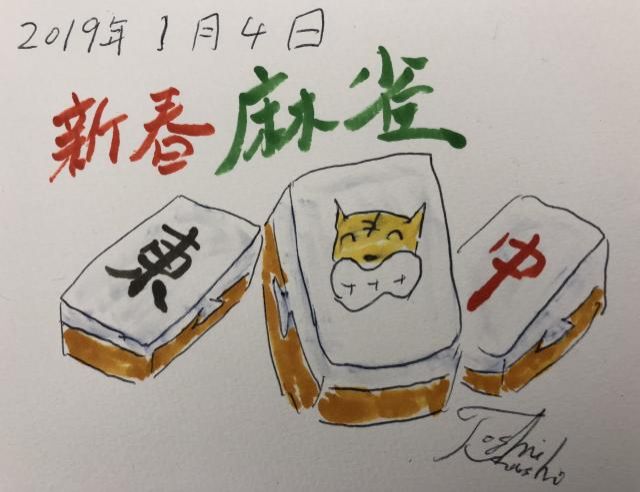 2019年1月4日
新春麻雀
東
中
Toshi